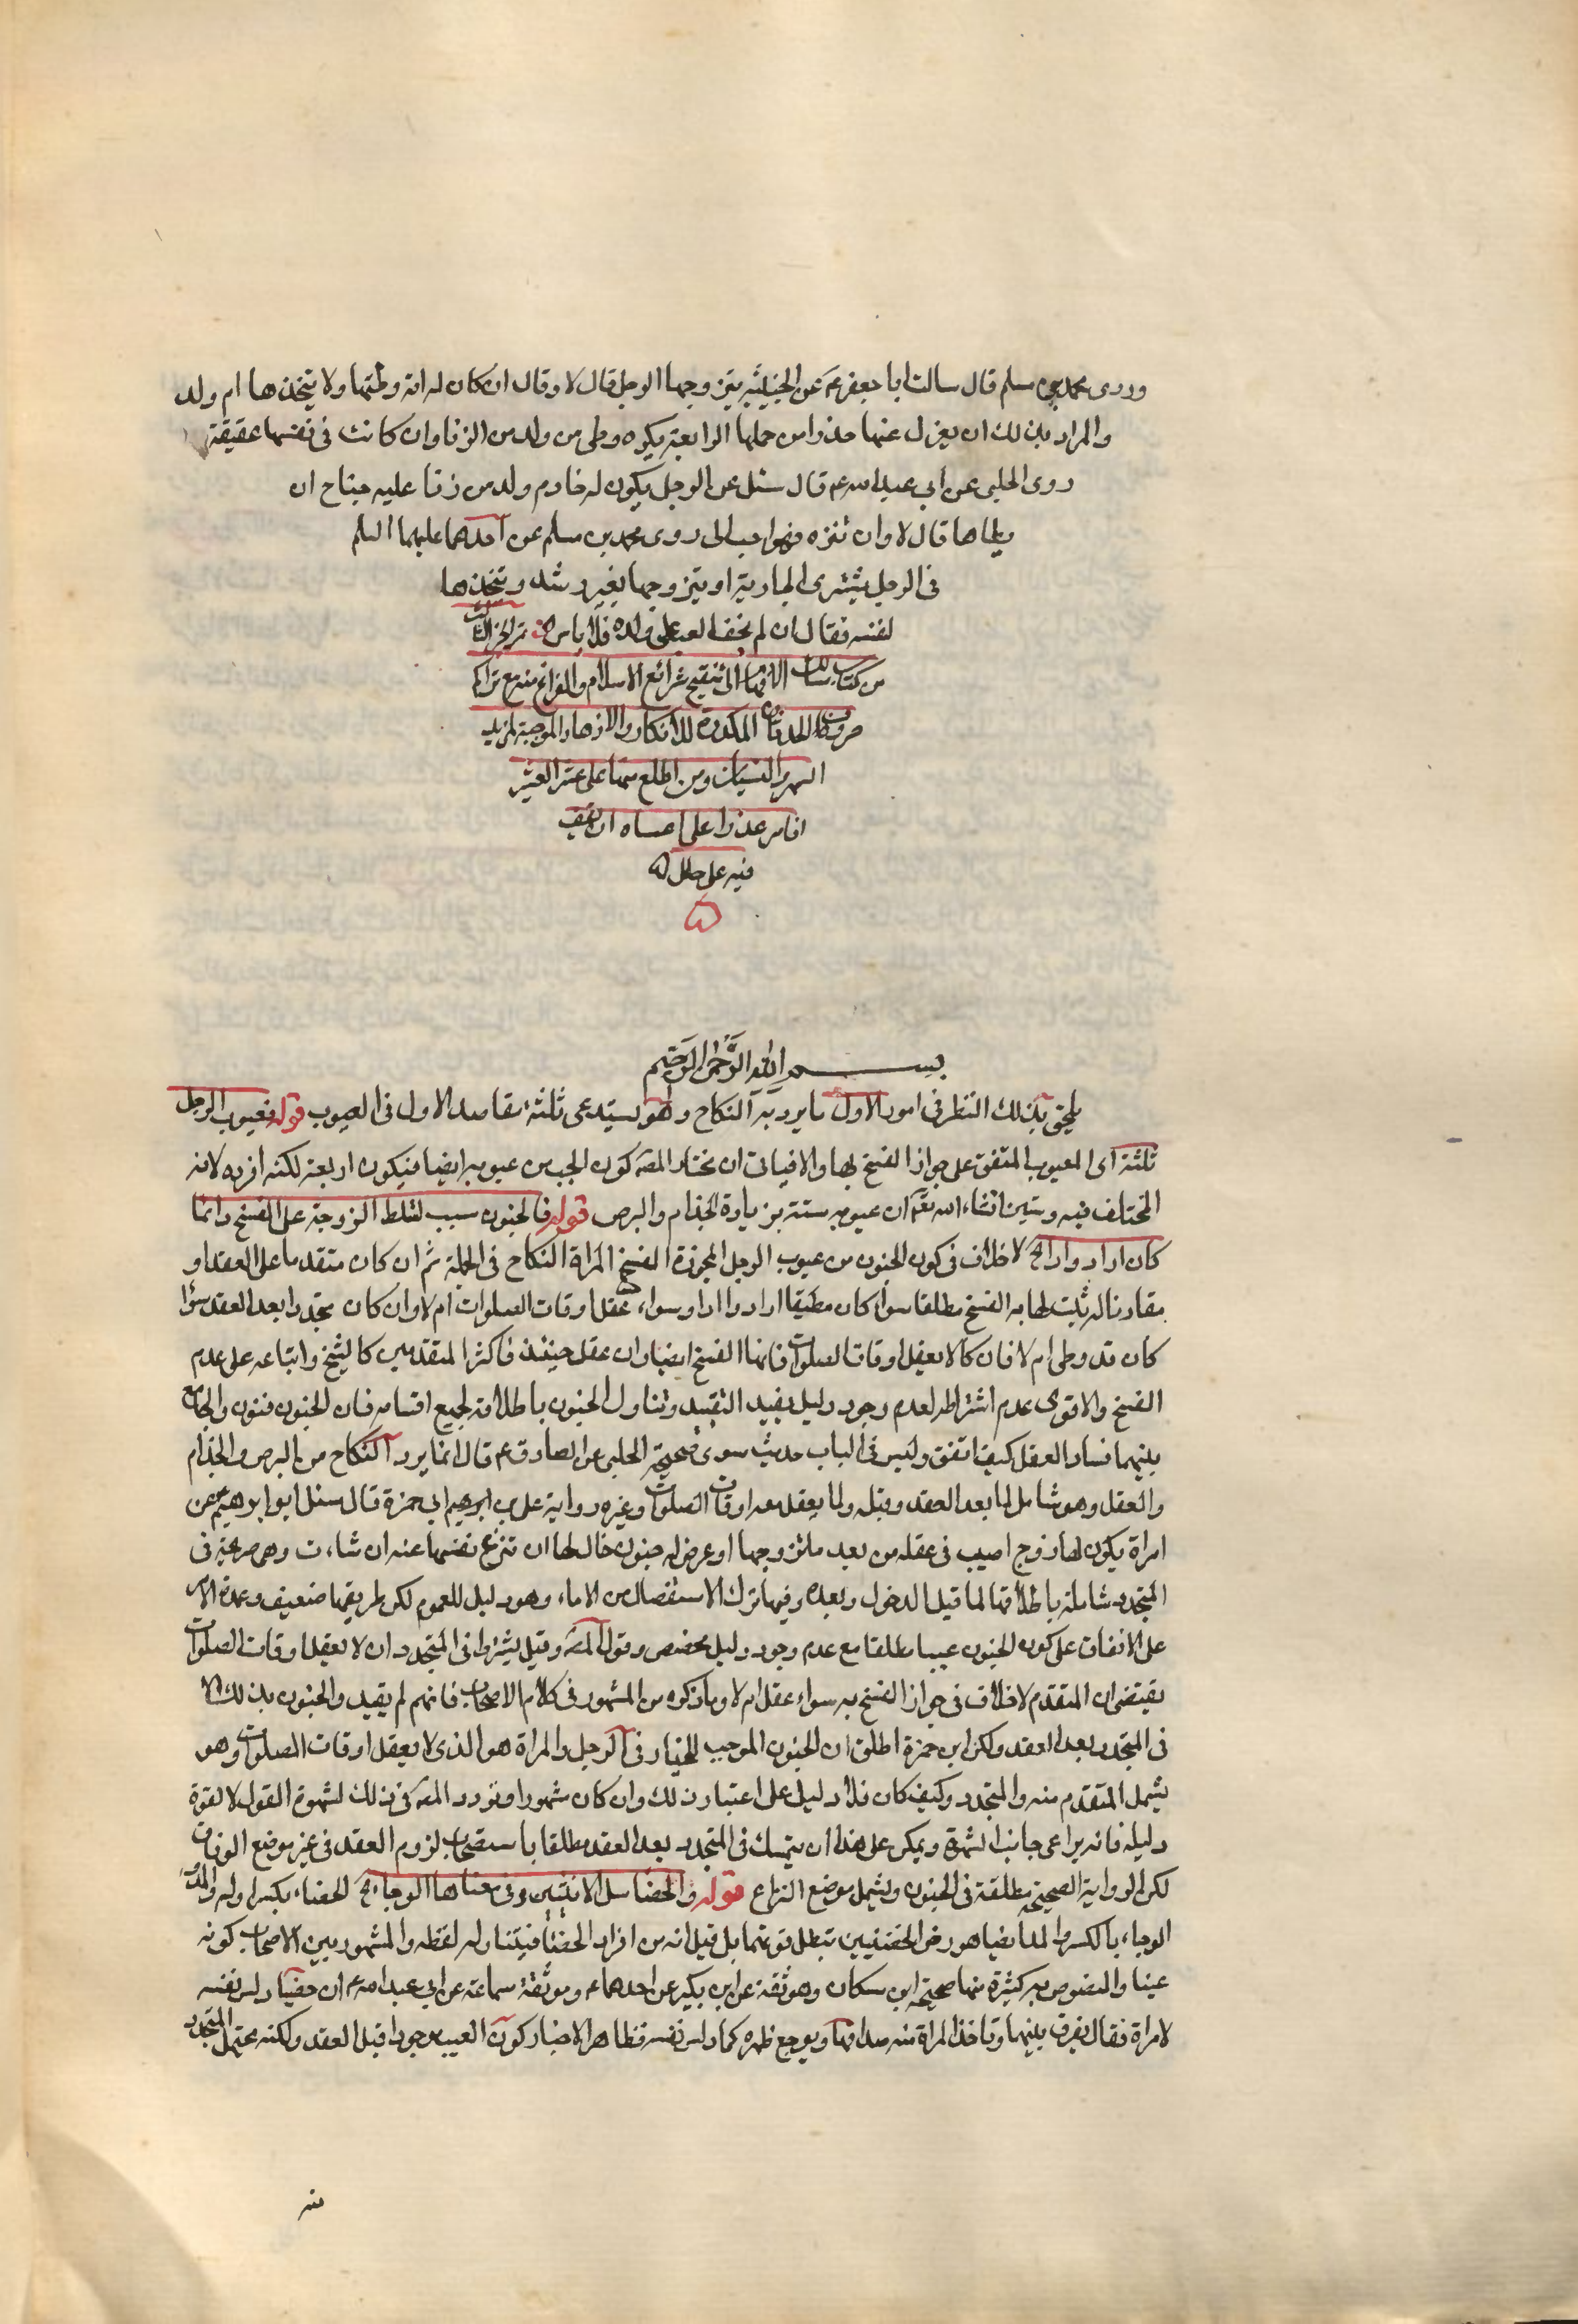 وروى محمد بن مسلم قال سالت ابا جعفر عم عن الخبيثة يتزوجها الرجل قال لا وقال ان كان له امة وطئها ولا يتخذها ام ولد
والمراد بذلك ان يعزل عنها حذرا من حملها الرابعة يكره وطى من ولد من الزنا وان كانت فى نفسها عفيفة
روى الحلبى عن ابي عبد الله عم قال سئل عن الرجل يكون له خادم ولد من زنا عليه جناح ان
يطاها قال لا وان تنزه فهو احب الى روى محمد بن مسلم عن احدهما عليهما السلم
فى الرجل يشترى الجارية او يتزوجها بغير رشد ويتخذها
لنفسه فقال ان لم يخف العيب على ولده فلا باس تم الجزء الثالث
من كتاب مسالك الافهام الى تنقيح شرائع الاسلام والفراغ منه مع تراكم
صروف الحدثان المكدرة للافكار والاذهان الموجبة لمزيد
السهو والنسيان ومن اطلع منها على عثر العشر
اقام عذرا على ما عساه ان يقف
فيه على خلل
بسم الله الرحمن الرحيم
يلحق بذلك النظر فى امور الاول ما يرد به النكاح وهو يستدعى ثلثة مقاصد الاول فى العيوب قوله فعيوب الرجل
ثلثة اى العيوب المتفق على جواز الفسخ بها والا فياتى ان مختار المصه كون الجب من عيوبه ايضا فيكون اربعة لكنه افرده لانه
المختلف فيه وستبين انشاء الله تعم ان عيوبه ستة بزيادة الجذام والبرص قوله فالجنون سبب لتسلط الزوجة على الفسخ دائما
كان او ادوارا الخ لا خلاف فى كون الجنون من عيوب الرجل المجوزة لفسخ المراة النكاح فى الجملة ثم ان كان متقدما على العقد او
مقارنا له ثبت لها به الفسخ مطلقا سواء كان مطبقا ام ادوارا وسواء عقل اوقات الصلوات ام لا وان كان متجددا بعد العقد سواء
كان قد وطى ام لا فان كان لا يعقل اوقات الصلوات فلها الفسخ ايضا وان عقل حينئذ فاكثر المتقدمين كالشيخ واتباعه على عدم
الفسخ والاقوى عدم اشتراطه لعدم وجود دليل يفيد التقييد وتناول الجنون باطلاقه لجميع اقسامه فان الجنون فنون والجامع
بينهما فساد العقل كيف اتفق وليس فى الباب حديث سوى صحيحة الحلبى عن الصادق عم قال انما يرد النكاح من البرص والجذام
والعقل وهو شامل لما بعد العقد وقبله ولما يعقل معه اوقات الصلوات وغيره ورواية على بن ابى حمزة قال سئل ابو ابراهيم عم عن
امراة يكون لها زوج اصيب فى عقله من بعد ما تزوجها او عرض له جنون فقال لها ان تنزع نفسها عنه ان شاءت وهى صريحة فى
المتجدد شاملة باطلاقها لما قبل الدخول وبعده وفيها ترك الاستفصال من الامام وهو دليل للعموم لكن طريقها ضعيف وعمدة الامر
على الاتفاق على كون الجنون عيبا مطلقا مع عدم وجود دليل مخصص وقول المصه وقيل يشترط فى المتجدد ان لا يعقل اوقات الصلوات
يقتضى ان المتقدم لا خلاف فى جواز الفسخ به سواء عقل ام لا وما ذكره من المشهور فى كلام الاصحاب فانهم لم يقيدوا الجنون بذلك الا
فى المتجدد بعد العقد ولكن ابن حمزة اطلق ان الجنون الموجب للخيار فى الرجل والمراة هو الذى لا يعقل اوقات الصلوات وهو
يشمل المتقدم منه والمتجدد وكيف كان فلا دليل على اعتبار ذلك وان كان مشهورا وتردد المصه فى ذلك لشهرة القول لا لقوة
دليله فانه يراعى جانب الشهرة ويمكن على هذا ان يتمسك فى المتجدد بعد العقد مطلقا باستصحاب لزوم العقد فى غير موضع الوفاق
لكن الرواية الصحيحة مطلقة فى الجنون ويشمل موضع النزاع قوله والخصا سل الانثيين وفى معناها الوجاء الخ الخصاء بكسر اوله والمد
الوجاء بالكسر والمد ايضا هو رض الخصيتين بحيث تبطل قوتهما بل قيل انه من افراد الخصا فيتناوله لفظه والمشهور بين الاصحاب كونه
عيبا والنصوص به كثيرة منها صحيحة ابن مسكان وموثقة عن ابن بكير عن احدهما عم وموثقة سماعة عن ابي عبد الله عم ان خصيا دلس نفسه
لامراة فقال يفرق بينهما وتاخذ المراة منه صداقها ويوجع ظهره كما دلس نفسه فظاهر الاخبار كون العيب موجودا قبل العقد ولكنه يحتمل المتجدد